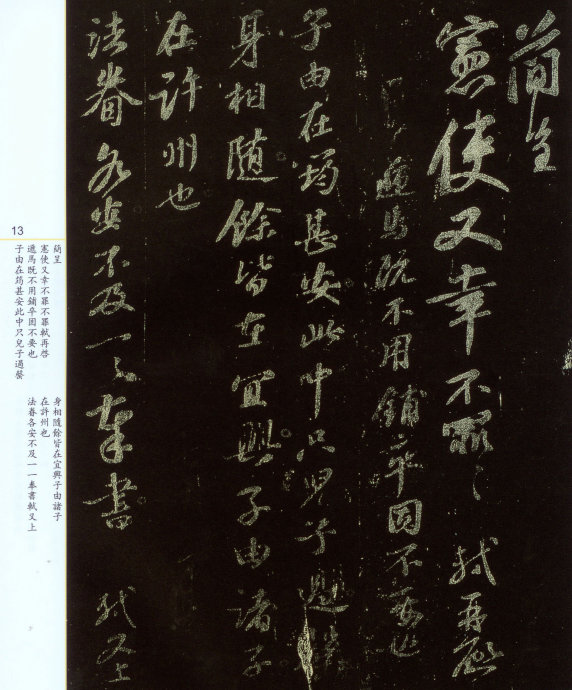 簡呈
憲使又幸不罪〻軾再啟
遞馬既不用鋪卒因不要也
子由在筠甚安此中只兒子過罄
身相隨餘皆在宜興子由諸子
在許州也
法眷各安不及一〻奉書軾又上
13
簡呈
憲使又幸不罪不罪軾再啓
遞馬既不用鋪卒因不要也
子由在筠甚安此中只兒子過罄
身相隨餘皆在宜興子由諸子
在許州也
法眷各安不及一一奉書軾又上